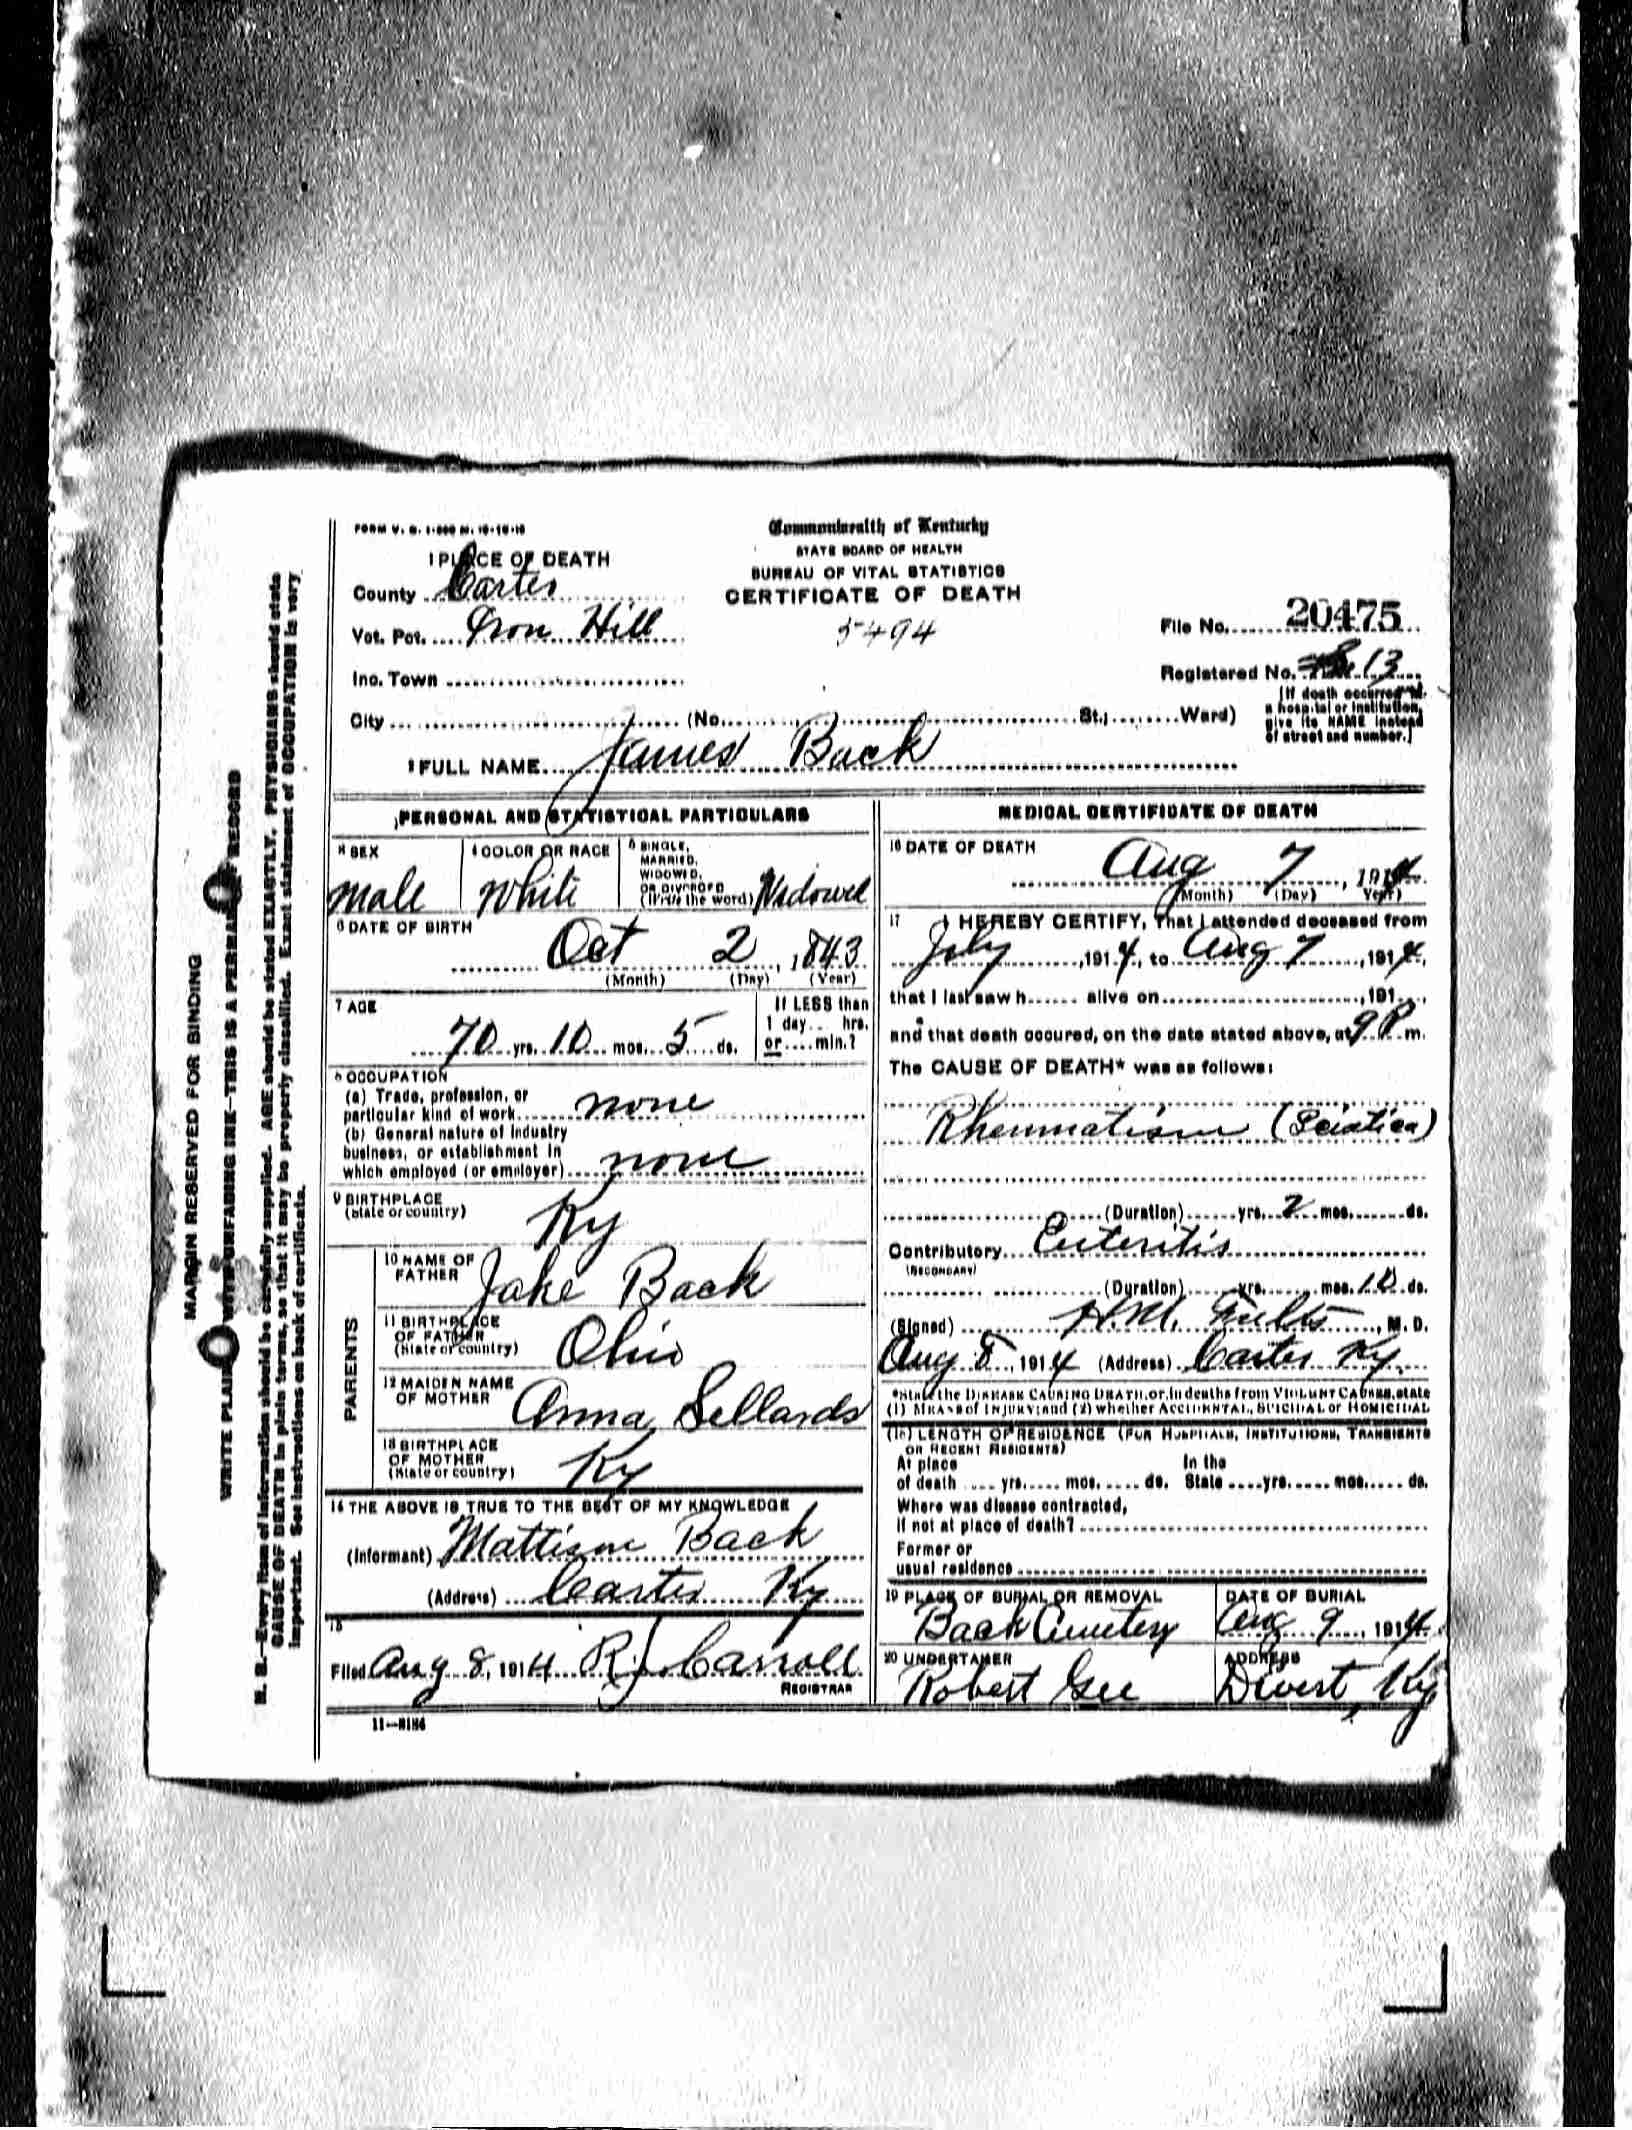 FORM V. S. 1-500 M. 10-10-10
Commonwealth of Kentucky
STATE BOARD OF HEALTH
BUREAU OF VITAL STATISTICS
CERTIFICATE OF DEATH
5494
1 PLACE OF DEATH
County Carter
Vot. Pct. Iron Hill
Inc. Town
City (No. St.; Ward)
File No. 20475
Registered No. 13
(If death occurred in
a hospital or institution,
give its NAME instead
of street and number.)
2 FULL NAME James Back
PERSONAL AND STATISTICAL PARTICULARS
3 SEX
male
4 COLOR OR RACE
White
5 SINGLE,
MARRIED,
WIDOWED,
OR DIVORCED
(Write the word) Widowed
6 DATE OF BIRTH
Oct 2, 1843
(Month) (Day) (Year)
7 AGE
70 yrs. 10 mos. 5 ds.
If LESS than
1 day... hrs.
or....min.?
8 OCCUPATION
(a) Trade, profession, or
particular kind of work none
(b) General nature of industry
business, or establishment in
which employed (or employer) none
9 BIRTHPLACE
(State or country) Ky
PARENTS
10 NAME OF
FATHER Jake Back
11 BIRTHPLACE
OF FATHER
(State or country) Ohio
12 MAIDEN NAME
OF MOTHER Anna Sellards
13 BIRTHPLACE
OF MOTHER
(State or country) Ky
14 THE ABOVE IS TRUE TO THE BEST OF MY KNOWLEDGE
(Informant) Mattison Back
(Address) Carter Ky
15
Filed Aug 8, 1914 R J Carroll
REGISTRAR
11-3184
MEDICAL CERTIFICATE OF DEATH
16 DATE OF DEATH
Aug 7, 1914
(Month) (Day) Year)
17 I HEREBY CERTIFY, That I attended deceased from
July, 1914, to Aug 7, 1914,
that I last saw h...... alive on, 191...,
and that death occured, on the date stated above, at 9 P. m.
The CAUSE OF DEATH* was as follows:
Rheumatism (Sciatica)
(Duration) yrs. 2 mos. ds.
Contributory Enteritis
(SECONDARY)
(Duration) yrs. mos. 10 ds.
(Signed) H.M. Fults, M. D.
Aug 8 1914 (Address) Carter Ky.
*State the DISEASE CAUSING DEATH, or, in deaths from VIOLENT CAUSES, state
(1) MEANS of INJURY; and (2) whether ACCIDENTAL, SUICIDAL or HOMICIDAL
(18) LENGTH OF RESIDENCE (FOR HOSPITALS, INSTITUTIONS, TRANSIENTS
OR RECENT RESIDENTS)
At place In the
of death .... yrs..... mos..... ds. State ....yrs..... mos..... ds.
Where was disease contracted,
if not at place of death?
Former or
usual residence
19 PLACE OF BURIAL OR REMOVAL
Back Cemetery
DATE OF BURIAL
Aug 9, 1914
20 UNDERTAKER
Robert Gee
ADDRESS
Divert, Ky
MARGIN RESERVED FOR BINDING
WRITE PLAINLY WITH UNFADING INK-THIS IS A PERMANENT RECORD
N. B.-Every item of information should be carefully supplied. AGE should be stated EXACTLY. PHYSICIANS should state
CAUSE OF DEATH in plain terms, so that it may be properly classified. Exact statement of OCCUPATION is very
important. See instructions on back of certificate.